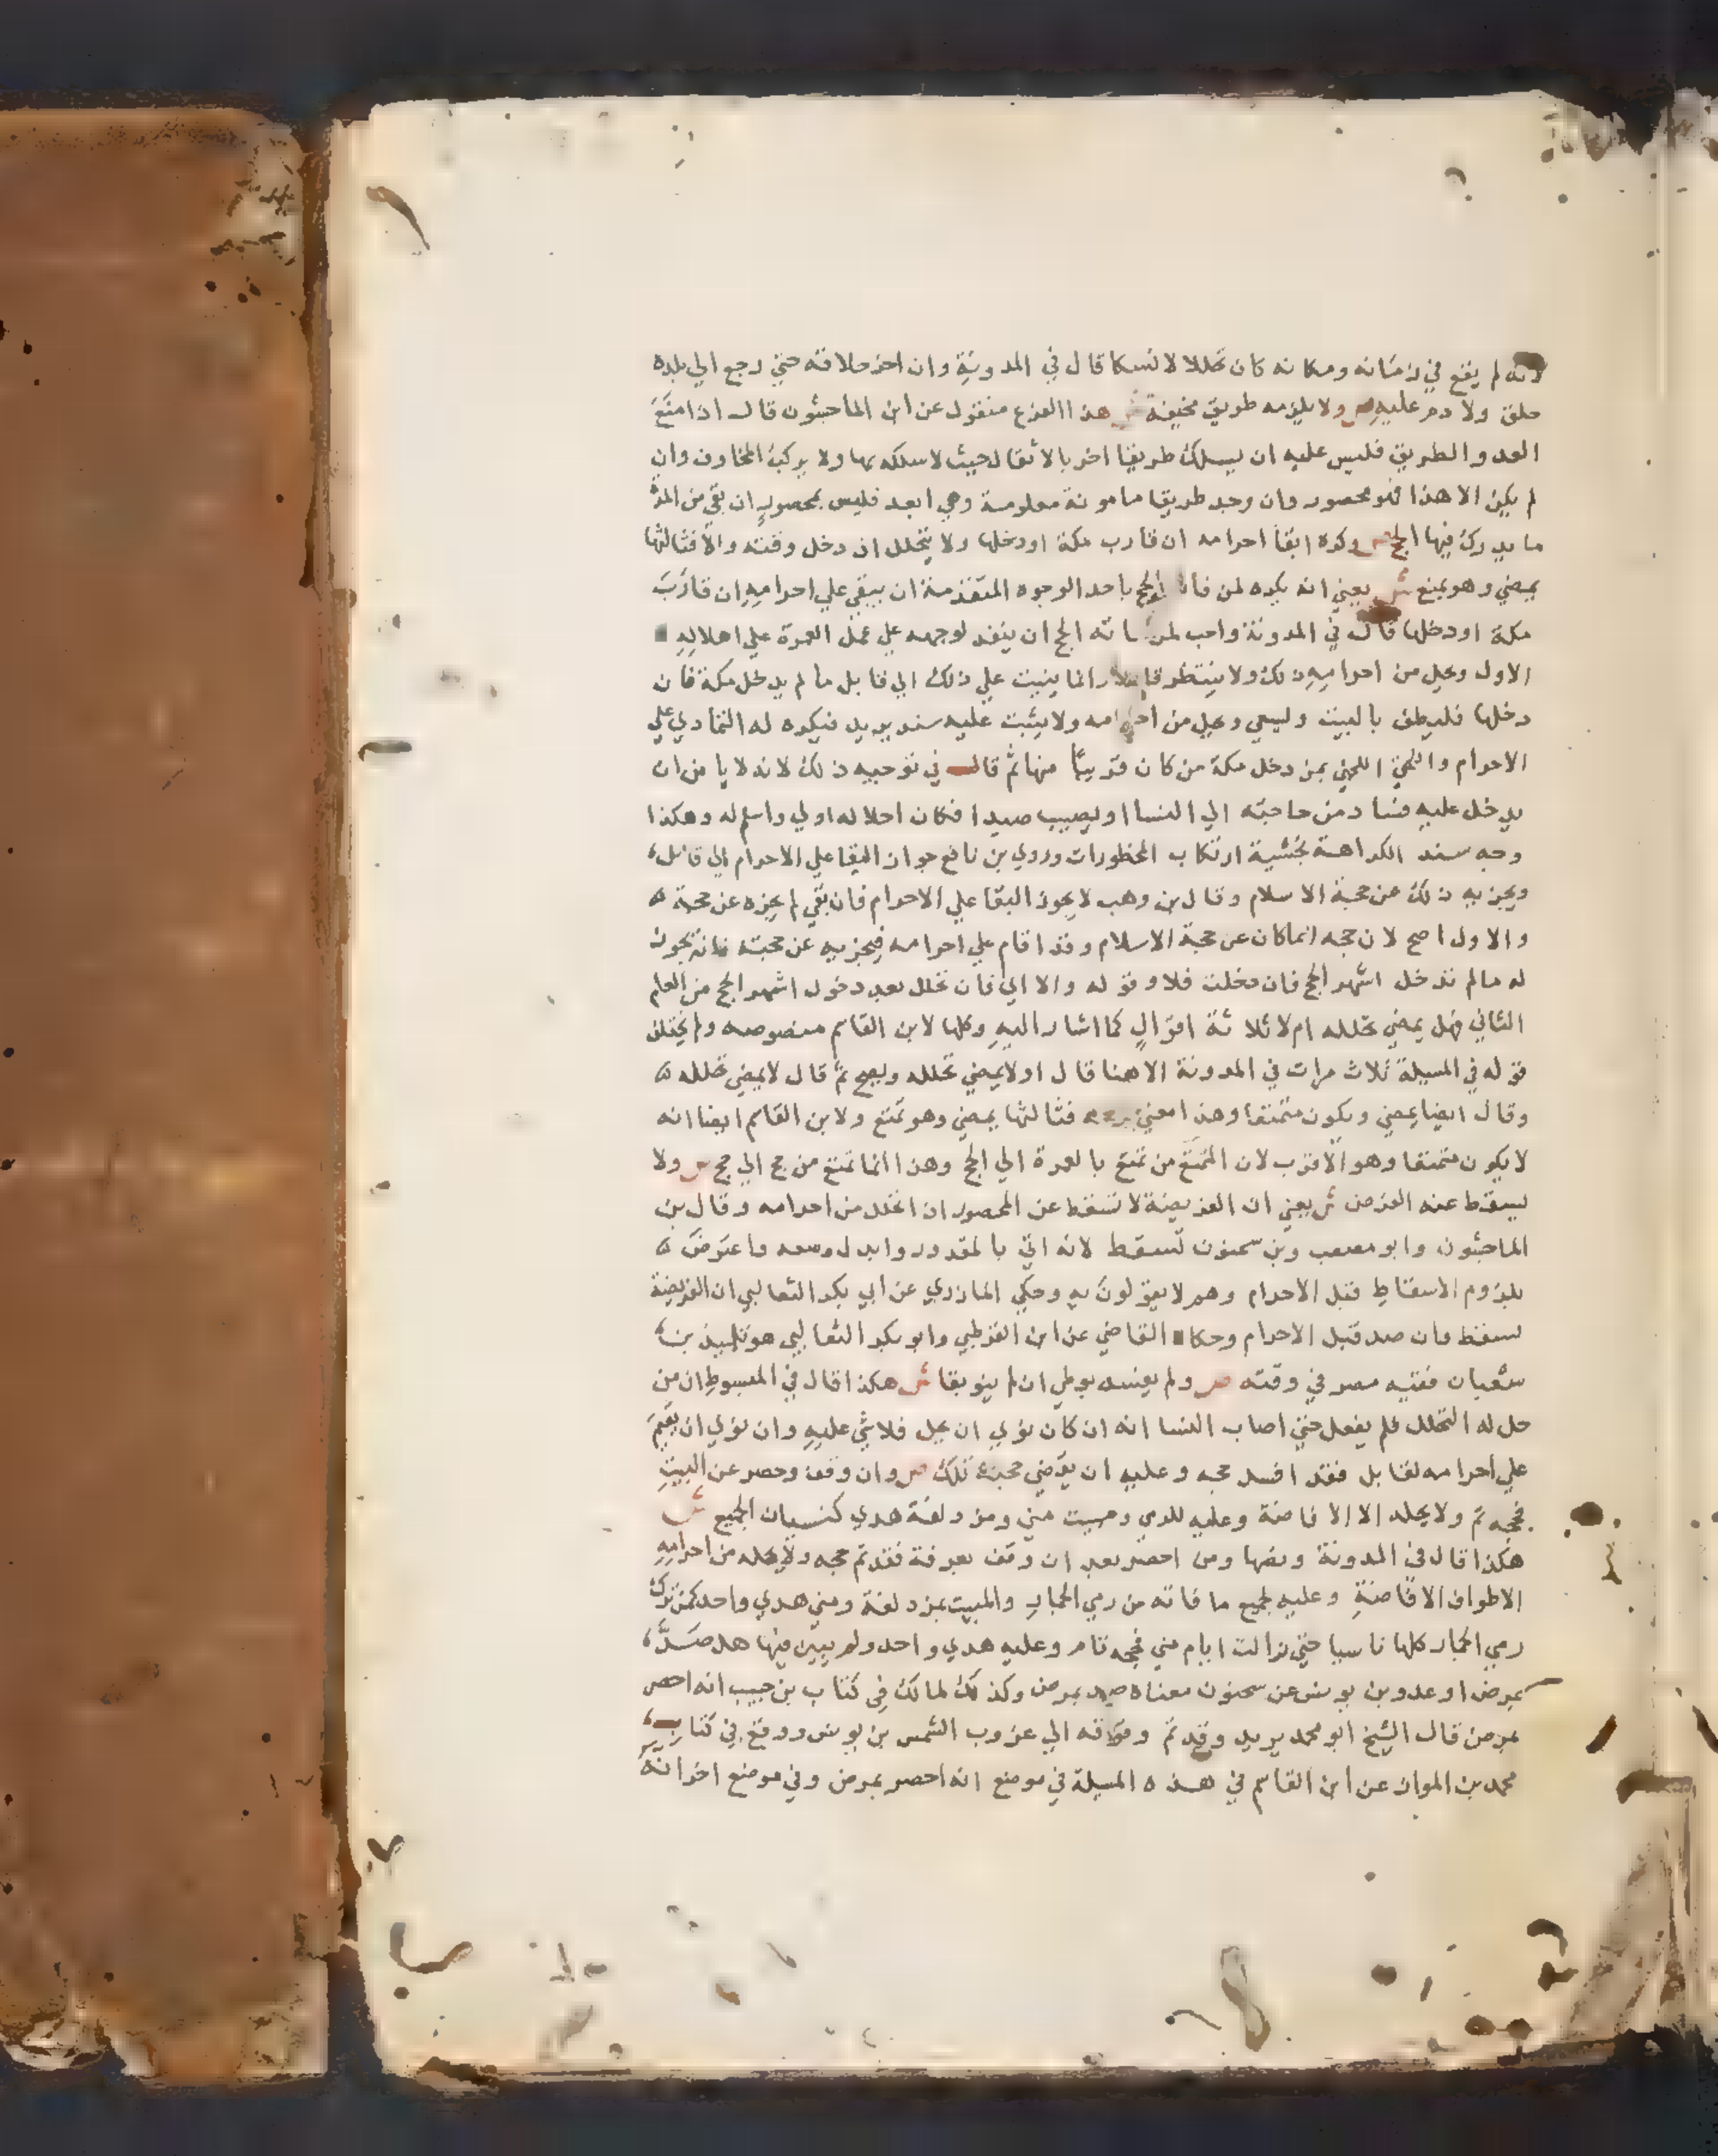 لانه لم يقع في زمانه ومكانه كان تحللا لا نسكا قال في المدونة وان اخر حلاقه حتي رجع الي بلده
حلق ولا دم عليه ص ولا يلزمه طريق مخيفة ش هذا الفرع منقول عن ابن الماجشون قال اذا منع
العدو الطريق فليس عليه ان يسلك طريقا اخر بالاثقال حيث لا سلكه بها ولا يركب المخاوف وان
لم يكن الا هذا فهو محصور وان وجد طريقا مامونة معلومة وهي ابعد فليس بمحصور ان بقي من المدة
ما يدرك فيها الحج ص وكره ابقا احرامه ان قارب مكة او دخلها ولا يتحلل ان دخل وقته والا فثالثها
يمضي وهو يمنع ش يعني انه يكره لمن فاته الحج باحد الوجوه المتقدمة ان يبقي علي احرامه ان قارب
مكة او دخلها قال في المدونة واحب لمن فاته الحج ان ينفذ لوجهه علي عمل العمرة علي اهلاله
الاول ويحل من احرامه ذلك ولا ينتظر قابلا وانما يثبت علي ذلك الي قابل ما لم يدخل مكة فان
دخلها فليطف بالبيت وليسعي ويحل من احرامه ولا يثبت عليه سند يريد فيكره له التمادي علي
الاحرام والحق اللخمي بمن دخل مكة من كان قريبا منها ثم قال في توجيه ذلك لانه لا يامن ان
يدخل عليه فساد من حاجته الي النسا او يصيب صيدا فكان احلاله اولي واسلم له وهكذا
وجه سند الكراهة بخشية ارتكاب المحظورات وروي بن نافع جواز البقا علي الاحرام الي قابل
ويجزيه ذلك عن حجة الاسلام وقال بن وهب لا يجوز البقا علي الاحرام فان بقي لم يجزه عن حجته
والاول اصح لان حجه انما كان عن حجة الاسلام وقد اقام علي احرامه فيجزيه عن حجته فانه يجوز
له ما لم تدخل اشهر الحج فان دخلت فلا وقوله والا اي فان تحلل بعد دخول اشهر الحج من العام
الثاني فهل يمضي تحلله ام لا ثلاثة اقوال كما اشار اليه وكلها لابن القاسم منصوصه ولم يختلف
قوله في المسيلة ثلاث مرات في المدونة الا هنا قال اولا يمضي تحلله ويصح ثم قال لا يمضي تحلله
وقال ايضا يمضي ويكون متمتعا وهذا معني فثالثها يمضي وهو تمتع ولابن القاسم ايضا انه
لا يكون متمتعا وهو الاقرب لان المتمتع من تمتع بالعمرة الي الحج وهذا انما تمتع من حج الي حج ص ولا
يسقط عنه الفرض ش يعني ان الفريضة لا تسقط عن المحصور اذا تحلل من احرامه وقال بن
الماجشون وابو مصعب وبن سحنون تسقط لانه اتي بالمقدور وابدل وسعه واعترض
بلزوم الاسقاط قبل الاحرام وهم لا يقولون به وحكي المازري عن ابي بكر الثعالبي ان الفريضة
تسقط وان صد قبل الاحرام وحكاه القاضي عن ابن القرطبي وابو بكر الثعالبي هو تلميذ بن
شعبان فقيه مصر في وقته ص ولم يفسد بوطي ان لم ينو بقا ش هكذا قال في المبسوط ان من
حل له التحلل فلم يفعل حتي اصاب النسا انه ان كان نوي ان يحل فلا شي عليه وان نوي ان يقيم
علي احرامه لقابل فقد افسد حجه وعليه ان يقضي حجته تلك ص وان وقف وحصر عن البيت
فحجه تم ولا يحله الا الافاضة وعليه للرمي ومبيت مني ومزدلفة هدي كنسيان الجميع ش
هكذا قال في المدونة ونصها ومن احصر بعد ان وقف بعرفة فقد تم حجه ولا يحله من احرامه
الا طواف الافاضة وعليه لجميع ما فاته من رمي الجمار والمبيت بمزدلفة ومني هدي واحد كمن ترك
رمي الجمار كلها ناسيا حتي زالت ايام مني فحجه تام وعليه هدي واحد ولم يبين فيها هل صد
بمرض او عدو بن يونس عن سحنون معناه صد بمرض وكذلك لمالك في كتاب بن حبيب انه احصر
بمرض قال الشيخ ابو محمد يريد وقد تم وقوفه الي غروب الشمس بن يونس ووقع في كتاب
محمد بن المواز عن ابن القاسم في هذه المسيلة في موضع انه احصر بمرض وفي موضع اخر انه